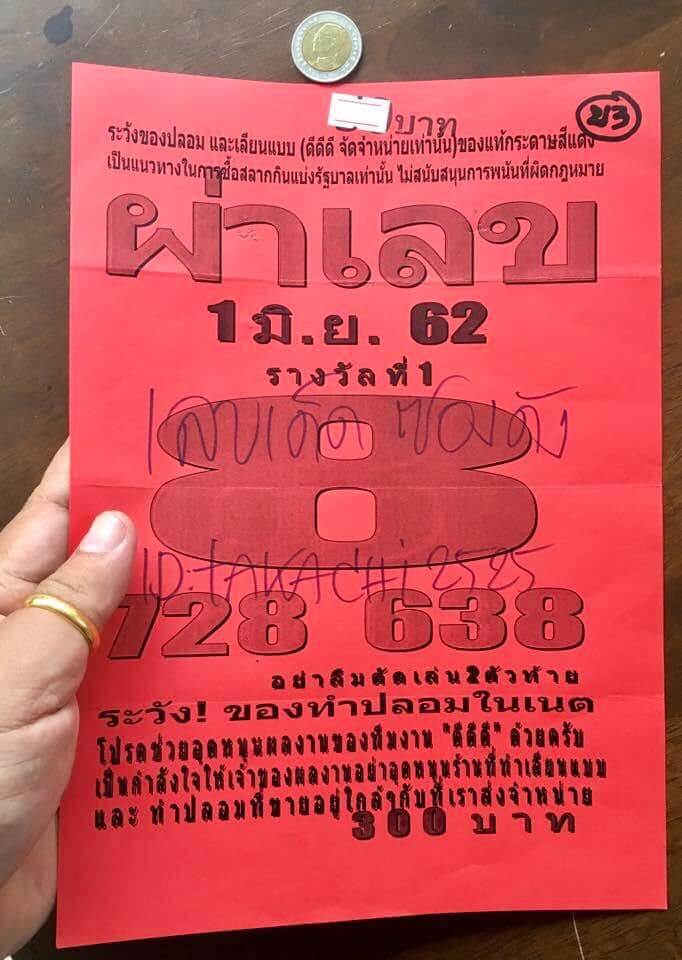 บาท
ระวังของปลอม และเลียนแบบ (ดีดีดี จัดจำหน่ายเท่านั้น)ของแท้กระดาษสีแดง
เป็นแนวทางในการซื้อสลากกินแบ่งรัฐบาลเท่านั้น ไม่สนับสนุนการพนันที่ผิดกฎหมาย
ผ่าเลข
1 มิ.ย. 62
รางวัลที่ 1
เลขเด็ด ซองดัง
8
ID:TAKACHi2525
728 638
อย่าลืมตัดเล่น2ตัวท้าย
ระวัง! ของทำปลอมในเนต
โปรดช่วยอุดหนุนผลงานของทีมงาน "ดีดีดี" ด้วยครับ
เป็นกำลังใจให้เจ้าของผลงานอย่าอุดหนุนร้านที่ทำเลียนแบบ
และ ทำปลอมที่ขายอยู่ใกล้ๆกับที่เราส่งจำหน่าย
300 บาท